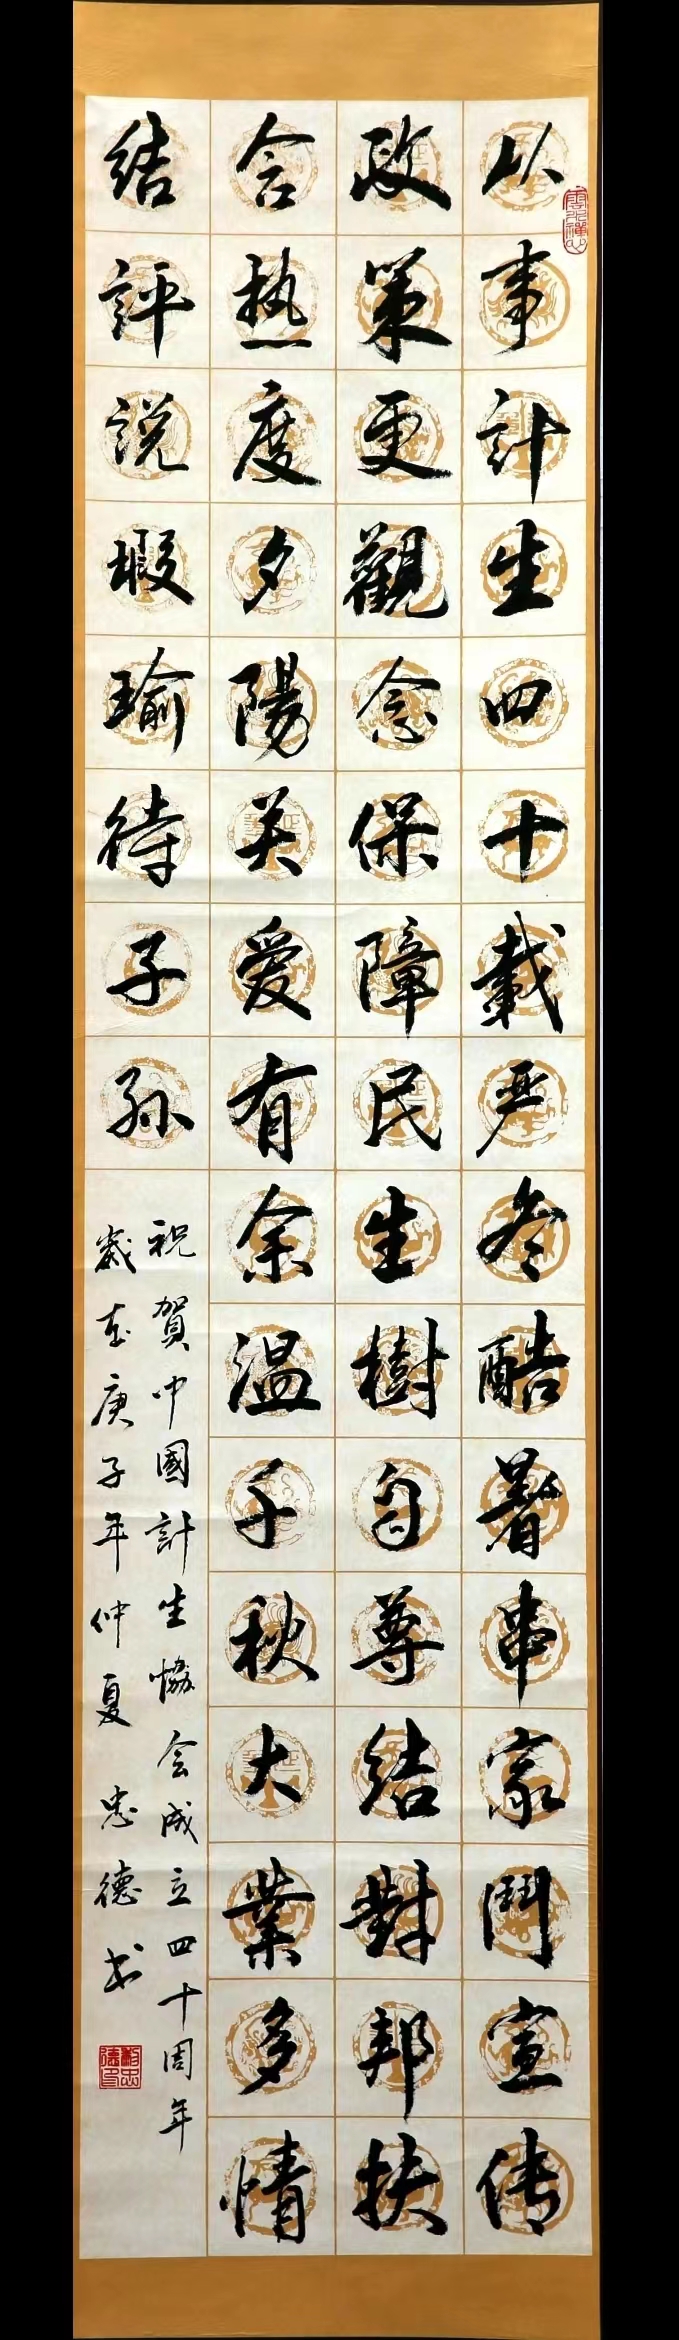 以事計生四十載严冬酷暑串家鬥宣传
政策更觀念保障民生樹自尊结對邦扶
含热度夕陽关爱有余温千秋大業多情
结評説瑕瑜待子孙
祝賀中國計生協会成立四十周年
歲在庚子年仲夏 忠德书